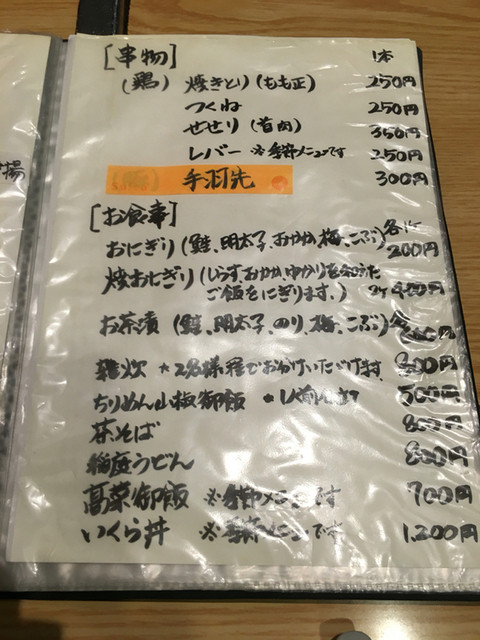 [串物] 1本
(鶏) 焼きとり(もも正) 250円
つくね 250円
せせり(首肉) 350円
レバー ※季節メニューです 250円
手羽先 300円
[お食事]
おにぎり(鮭、明太子、おかか、梅、こぶ) 各1ケ 200円
焼おにぎり(しらす、おかか、ゆかりを加えた
ご飯をにぎります。) 2ケ 400円
お茶漬(鮭、明太子、のり、梅、こぶ) 各
雑炊 *2名様程でお分けいただけます 800円
ちりめん山椒御飯 *1人前 500円
茶そば 800円
稲庭うどん 800円
高菜御飯 ※季節メニューです 700円
いくら丼 ※季節メニューです 1,200円
揚